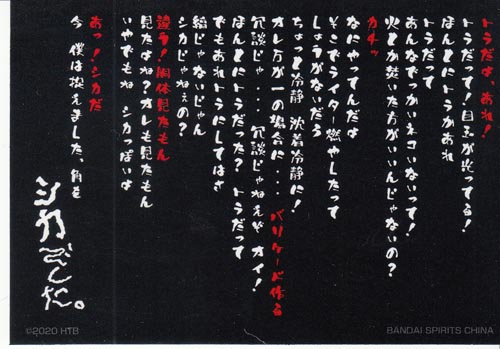 トラだよ、あれ!
トラだって!目玉が光ってる!
ほんとにトラかあれ
トラだって
あんなでっかいネコいないって!
火とか焚いた方がいいんじゃないの?
カチッ
なにやってんだよ
そこでライター燃やしたって
しょうがないだろ
ちょっと冷静 沈着冷静に!
オレ万が一の場合に・・・
バリケード作る
冗談じゃ・・・冗談じゃねぇぞ オイ!
ほんとにトラだった? トラだって
でもあれトラにしてはさ
縞じゃないじゃん
シカじゃねぇの?
違う!胴体見たもん
見たよね?オレも見たもん
いやでもね シカっぽいよ
あっ!シカだ
今 僕は捉えました、角を
シカでした。
©2020 HTB
BANDAI SPIRITS CHINA